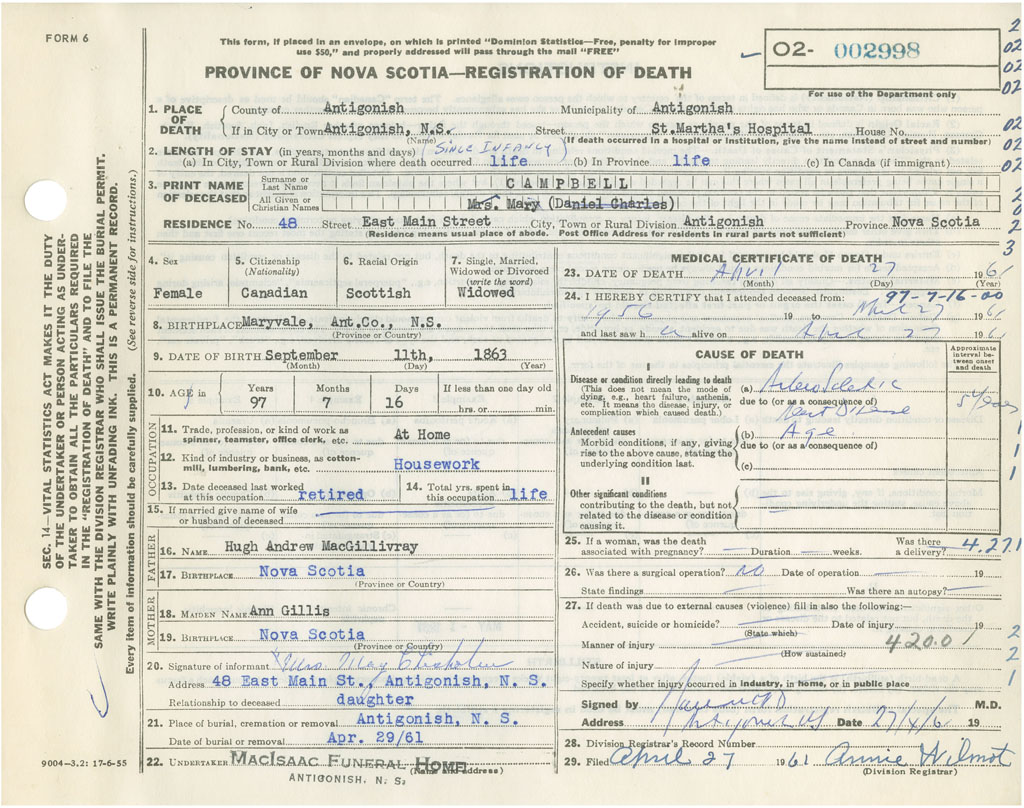 FORM 6
This form, if placed in an envelope, on which is printed "Dominion Statistics—Free, penalty for improper
use $50," and properly addressed will pass through the mail "FREE"
PROVINCE OF NOVA SCOTIA—REGISTRATION OF DEATH
02- 002998
For use of the Department only
2
02
02
02
02
02
02
2
0
2
3
SEC. 14—VITAL STATISTICS ACT MAKES IT THE DUTY
OF THE UNDERTAKER OR PERSON ACTING AS UNDER-
TAKER TO OBTAIN ALL THE PARTICULARS REQUIRED
IN THE "REGISTRATION OF DEATH" AND TO FILE THE
SAME WITH THE DIVISION REGISTRAR WHO SHALL ISSUE THE BURIAL PERMIT.
WRITE PLAINLY WITH UNFADING INK. THIS IS A PERMANENT RECORD.
Every item of information should be carefully supplied. (See reverse side for instructions.)
1. PLACE OF DEATH County of Antigonish Municipality of Antigonish
If in City or Town Antigonish, N.S. Street St.Martha's Hospital House No.
(Name) (If death occurred in a hospital or institution, give the name instead of street and number)
2. LENGTH OF STAY (in years, months and days) (SINCE INFANCY)
(a) In City, Town or Rural Division where death occurred life (b) In Province life (c) In Canada (if immigrant)
3. PRINT NAME OF DECEASED Surname or Last Name CAMPBELL
All Given or Christian Names Mrs. Mary (Daniel Charles)
RESIDENCE No. 48 Street East Main Street City, Town or Rural Division Antigonish Province Nova Scotia
(Residence means usual place of abode. Post Office Address for residents in rural parts not sufficient)
4. Sex Female
5. Citizenship (Nationality) Canadian
6. Racial Origin Scottish
7. Single, Married, Widowed or Divorced (write the word) Widowed
8. BIRTHPLACE Maryvale, Ant.Co., N.S.
(Province or Country)
9. DATE OF BIRTH September 11th, 1863
(Month) (Day) (Year)
10. AGE in Years 97 Months 7 Days 16 If less than one day old hrs. or min.
OCCUPATION
11. Trade, profession, or kind of work as spinner, teamster, office clerk, etc. At Home
12. Kind of industry or business, as cotton-mill, lumbering, bank, etc. Housework
13. Date deceased last worked at this occupation retired 14. Total yrs. spent in this occupation life
15. If married give name of wife or husband of deceased
FATHER
16. NAME Hugh Andrew MacGillivray
17. BIRTHPLACE Nova Scotia
(Province or Country)
MOTHER
18. MAIDEN NAME Ann Gillis
19. BIRTHPLACE Nova Scotia
(Province or Country)
20. Signature of informant Mrs. May Chisholm
Address 48 East Main St., Antigonish, N. S.
Relationship to deceased daughter
21. Place of burial, cremation or removal Antigonish, N. S.
Date of burial or removal Apr. 29/61
22. UNDERTAKER MACISAAC FUNERAL HOME
(Name and address)
ANTIGONISH, N. S.
9004—3.2: 17-6-55
MEDICAL CERTIFICATE OF DEATH
23. DATE OF DEATH April 27 1961
(Month) (Day) (Year)
24. I HEREBY CERTIFY that I attended deceased from: 97-7-16-00
1956 19 to 27 1961
and last saw h alive on 27 1961
CAUSE OF DEATH
Approximate interval between onset and death
I
Disease or condition directly leading to death
(This does not mean the mode of dying, e.g., heart failure, asthenia, etc. It means the disease, injury, or complication which caused death.)
(a) Arterio Scleric
due to (or as a consequence of)
Heart Disease 5 years
Antecedent causes
Morbid conditions, if any, giving rise to the above cause, stating the underlying condition last.
(b) Age
due to (or as a consequence of)
(c)
1
1
1
II
Other significant conditions
contributing to the death, but not related to the disease or condition causing it.
25. If a woman, was the death associated with pregnancy? Duration weeks. Was there a delivery? 4.27.1
26. Was there a surgical operation? No Date of operation 19
State findings Was there an autopsy?
27. If death was due to external causes (violence) fill in also the following:—
Accident, suicide or homicide? Date of injury 19 2
(State which)
Manner of injury 420.0 2
(How sustained)
Nature of injury
Specify whether injury occurred in industry, in home, or in public place 1
Signed by M.D.
Address Antigonish Date 27/4/61 19
28. Division Registrar's Record Number
29. Filed April 27 1961 Annie Wilmot
(Division Registrar)